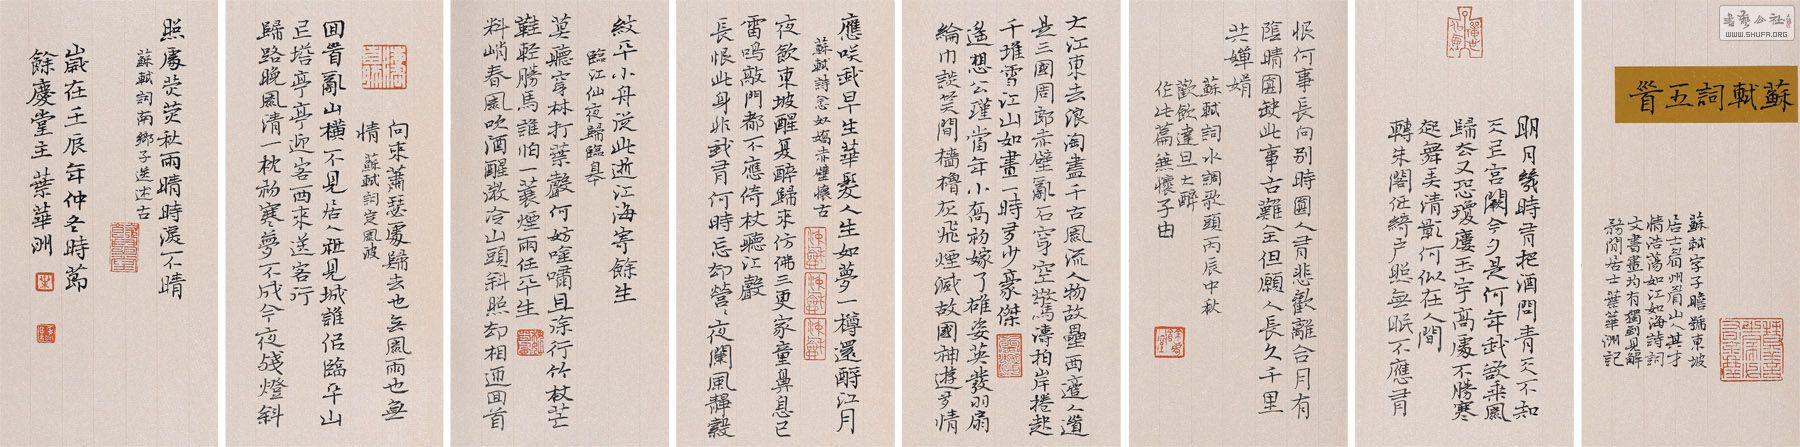 书法公社
WWW.SHUFA.ORG
蘇軾詞五首
蘇軾字子瞻號東坡
居士眉州眉山人其才
情浩蕩如江如海詩詞
文書畫均有獨到見解
務閒居士葉華洲記
明月幾時有把酒問青天不知
天上宮闕今夕是何年我欲乘風
歸去又恐瓊廔玉宇高處不勝寒
起舞弄清影何似在人間
轉朱閣低綺户照無眠不應有
恨何事長向别時圓人有悲歡離合月有
陰晴圓缺此事古難全但願人長久千里
共嬋娟
蘇軾詞水調歌頭丙辰中秋
歡飲達旦大醉
作此篇兼懷子由
大江東去浪淘盡千古風流人物故壘西邊人道
是三國周郎赤壁亂石穿空驚濤拍岸捲起
千堆雪江山如畫一時多少豪傑
遙想公瑾當年小喬初嫁了雄姿英發羽扇
綸巾談笑間檣櫓灰飛煙滅故國神遊多情
應笑我早生華髮人生如夢一樽還酹江月
蘇軾詩念奴嬌赤壁懷古
夜飲東坡醒復醉歸來仿佛三更家童鼻息已
雷鳴敲門都不應倚杖聽江聲
長恨此身非我有何時忘却營〻夜闌風靜縠
紋平小舟從此逝江海寄餘生
臨江仙夜歸臨皋
莫聽穿林打葉聲何妨唫嘯且徐行竹杖芒
鞋輕勝馬誰怕一蓑煙雨任平生
料峭春風吹酒醒微冷山頭斜照却相迎回首
向來蕭瑟處歸去也無風雨也無
情 蘇軾詞定風波
回首亂山橫不見居人祗見城誰侣臨平山
上塔亭亭迎客西來送客行
歸路晚風清一枕初寒夢不成今夜殘燈斜
照處熒熒秋雨晴時淚不晴
蘇軾詞南鄉子送述古
歲在壬辰年仲冬時節
餘慶堂主葉華洲